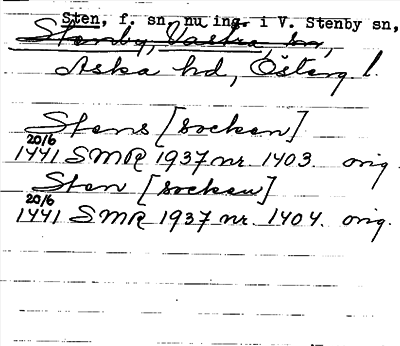 Sten, f. sn, nu ing. i V. Stenby sn,
Stenby, Västra, sn,
Aska hd, Österg l.
Stens [socken]
20/6
1441 SMR 1937 nr. 1403. orig.
Sten [socken]
20/6
1441 SMR 1937 nr. 1404. orig.